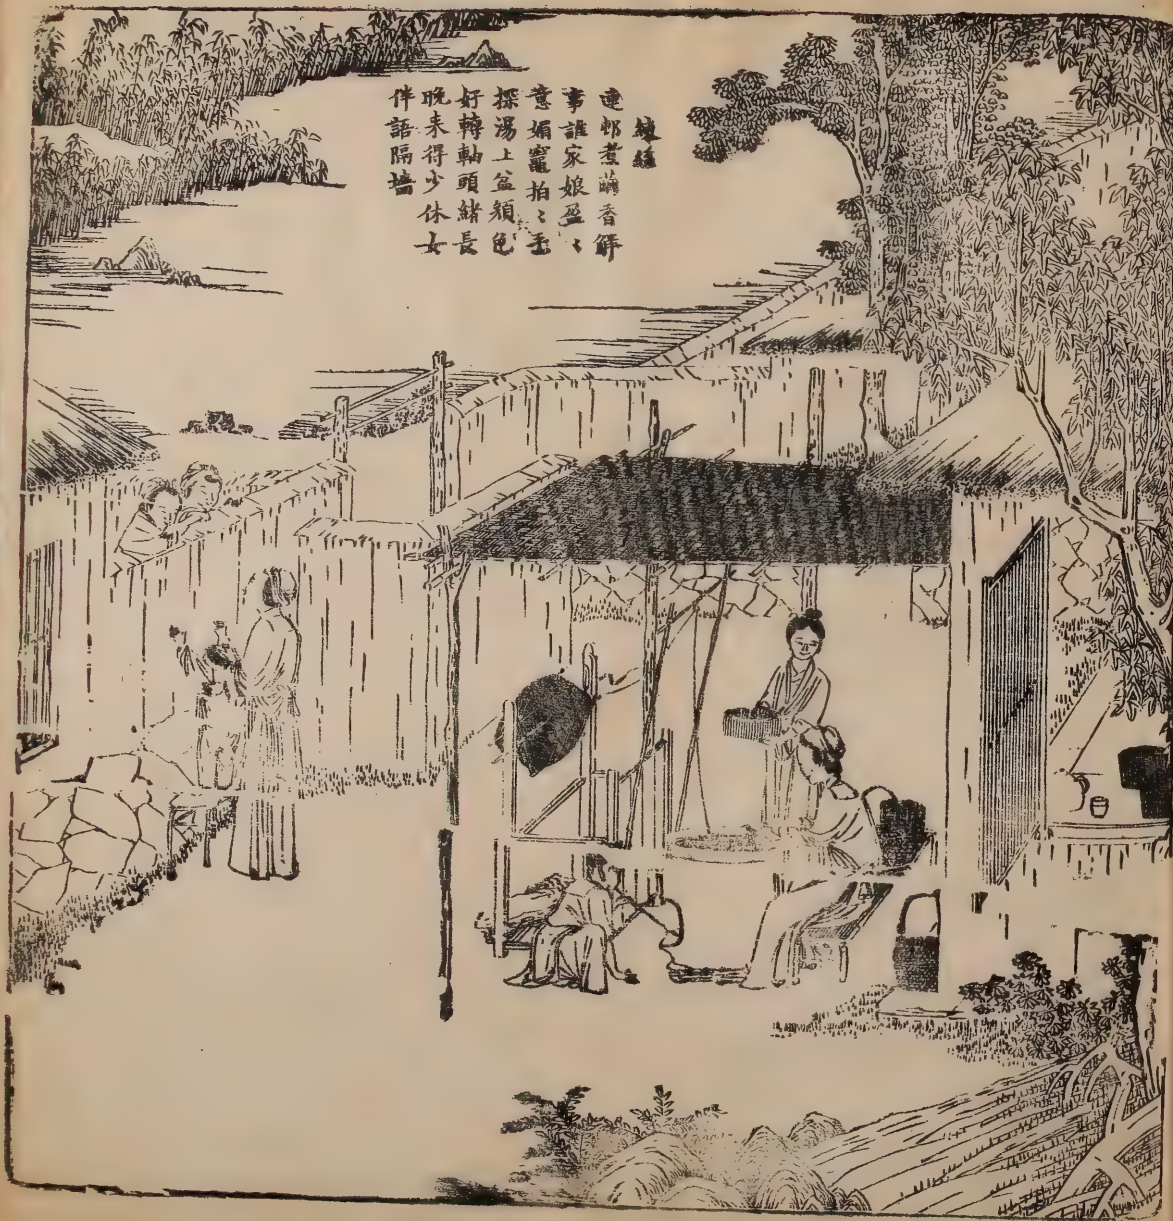 繅絲
連邨煮繭香解
事誰家娘盈〻
意媚竈拍〻手
探湯上盆顏色
好轉軸頭緒長
晚来得少休女
伴語隔墻